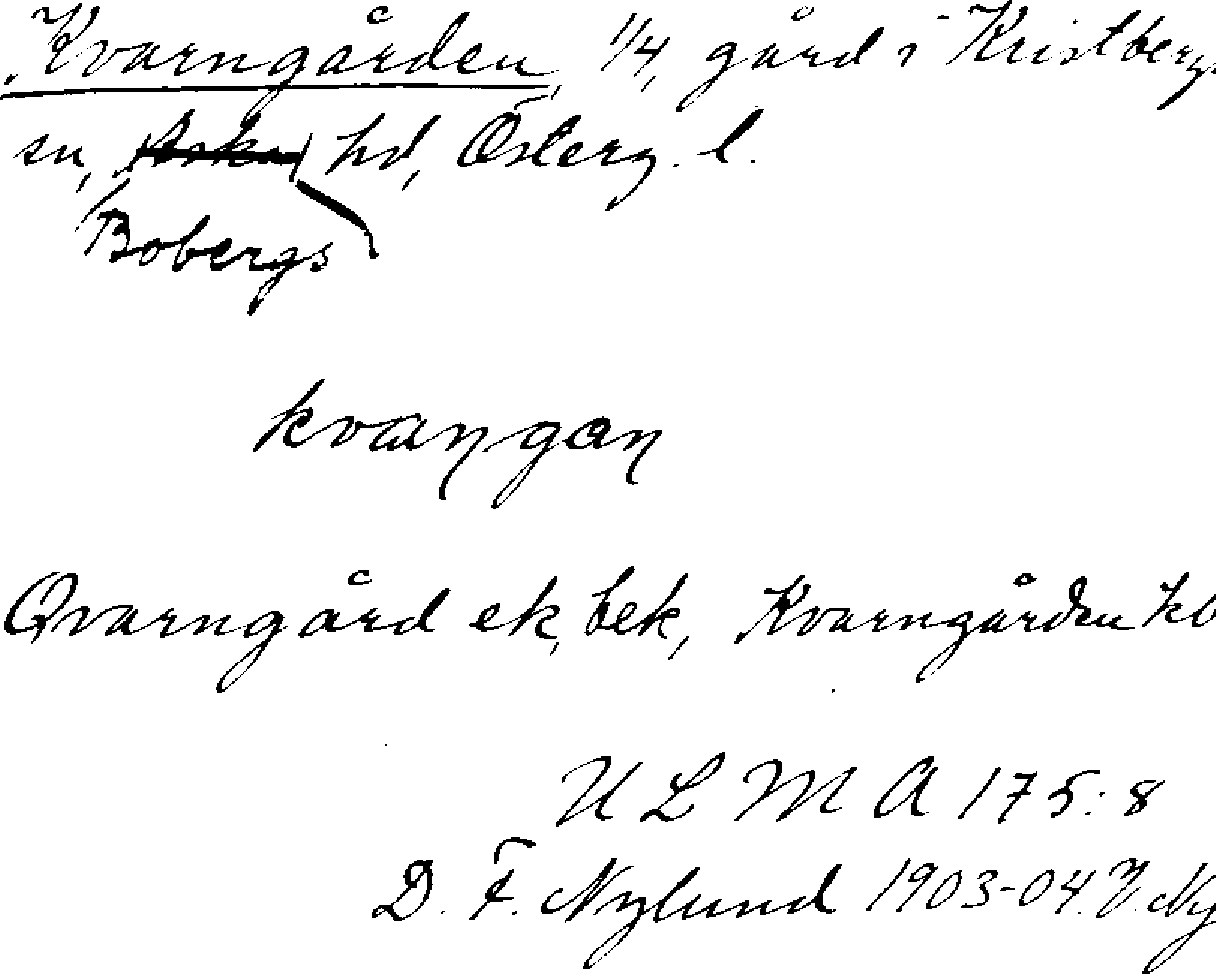 Kvarngården, 1/4, gård i Kristbergs
sn, Aska hd, Österg. l.
Bobergs
kvaŋgaŋ
Qvarngård ek, bek, Kvarngården kb
U L M A 175:8
D. F. Nylund 1903-04. J. Ny